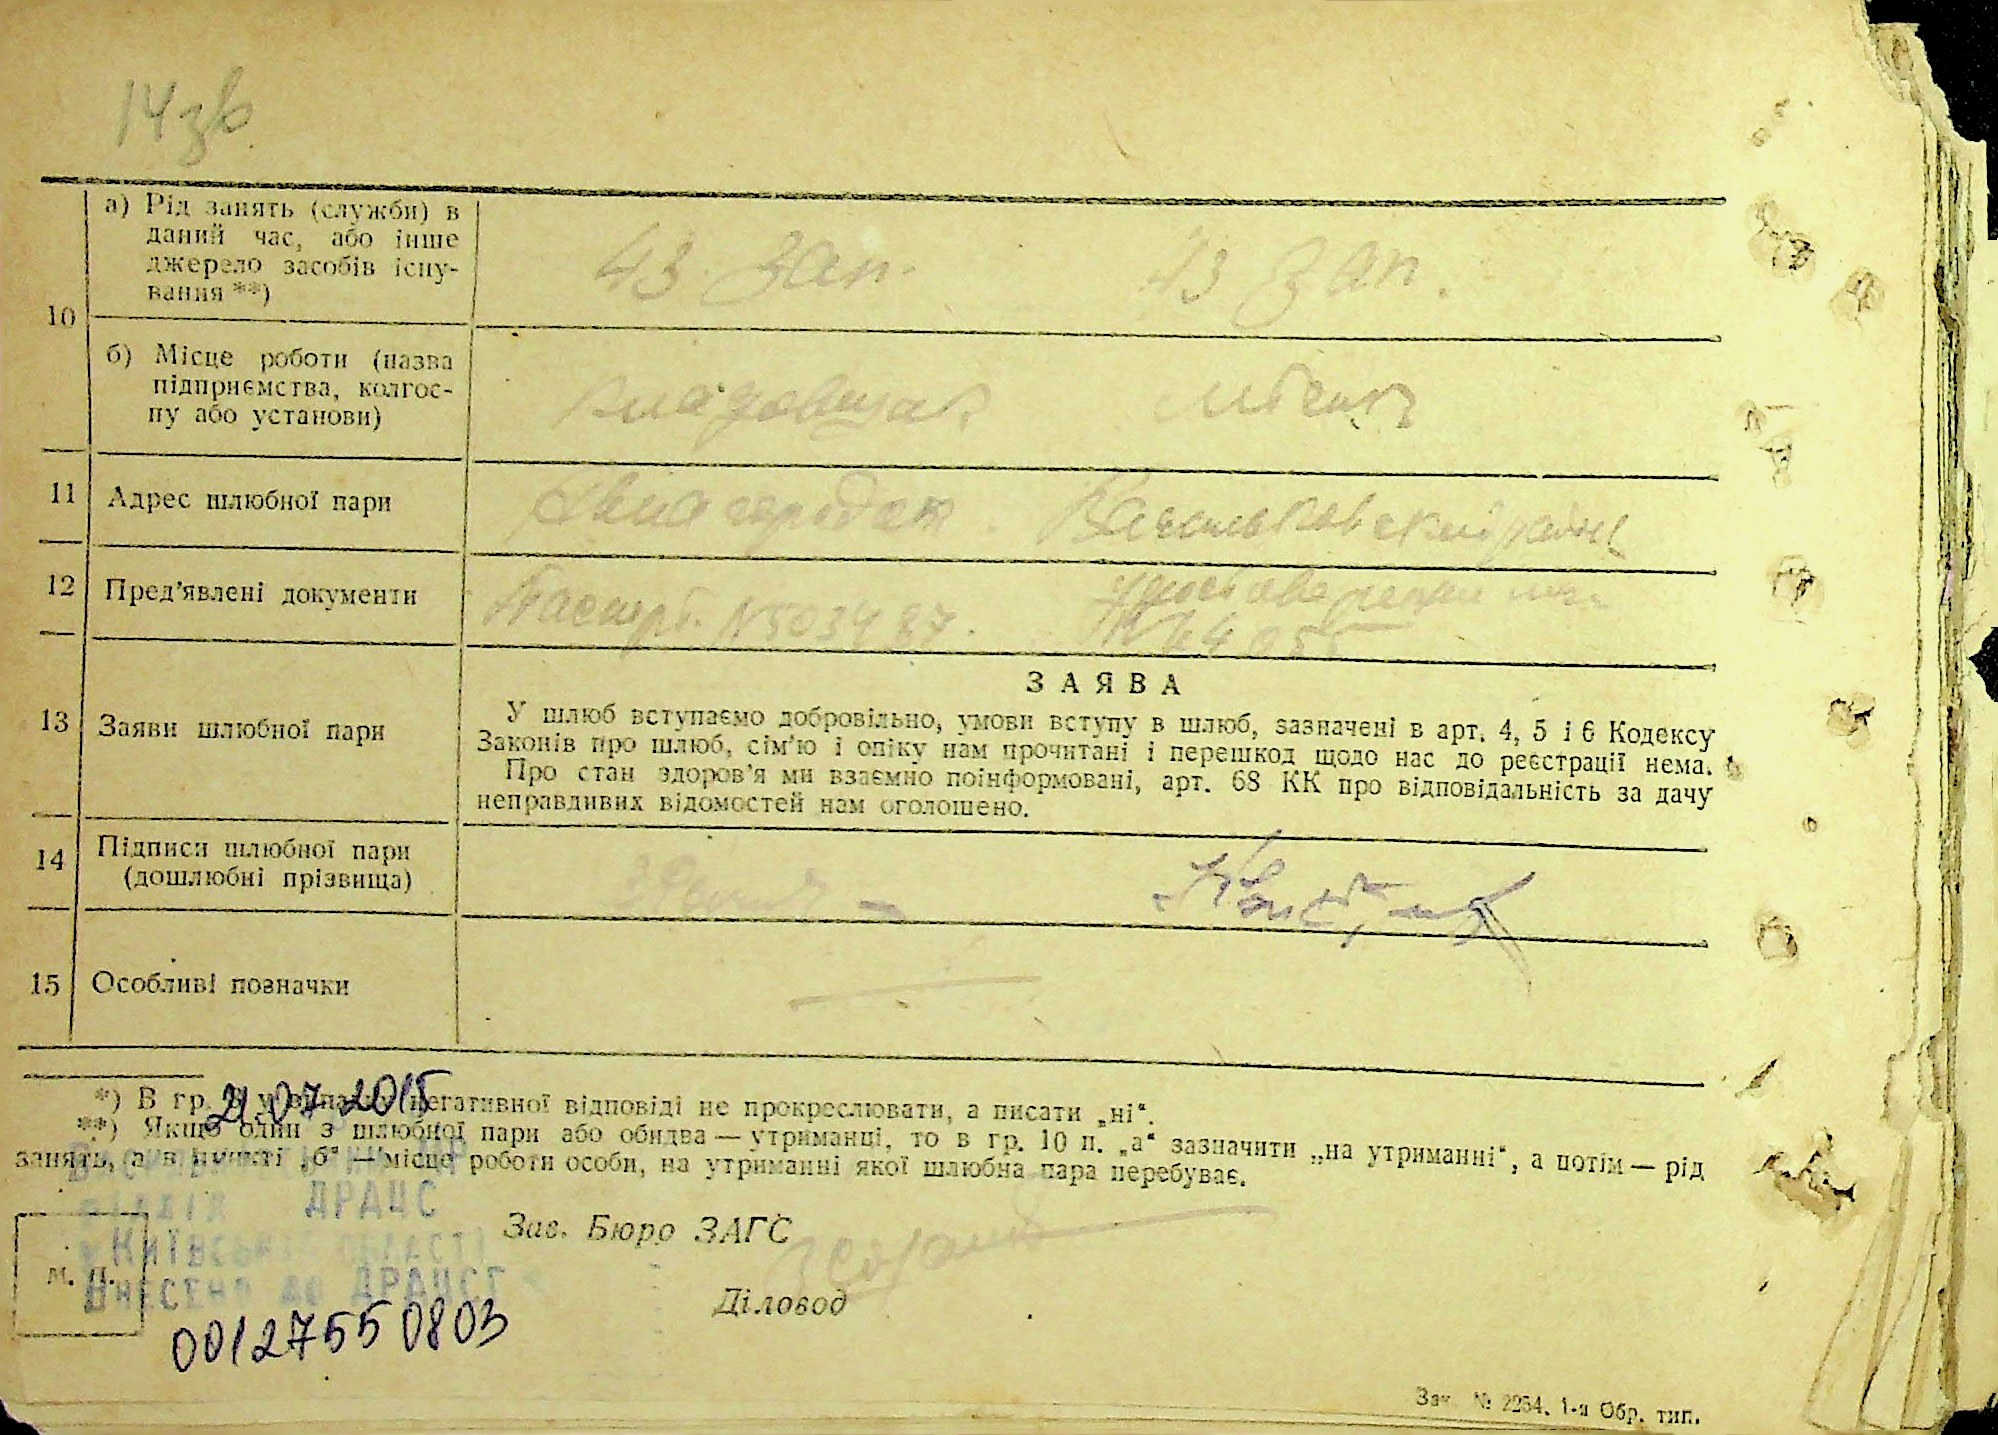 14зв
10
а) Рід занять (служби) в
даний час, або інше
джерело засобів існу-
вання **)
43 зап.
43 зап.
б) Місце роботи (назва
підприємства, колгос-
пу або установи)
11
Адрес шлюбної пари
Авиагородок. Васильковский район
12
Пред'явлені документи
Паспорт. N 503487.
Удостоверение
13
Заяви шлюбної пари
ЗАЯВА
У шлюб вступаємо добровільно, умови вступу в шлюб, зазначені в арт. 4, 5 і 6 Кодексу
Законів про шлюб, сім'ю і опіку нам прочитані і перешкод щодо нас до реєстрації нема.
Про стан здоров'я ми взаємно поінформовані, арт. 68 КК про відповідальність за дачу
неправдивих відомостей нам оголошено.
14
Підписи шлюбної пари
(дошлюбні прізвища)
15
Особливі позначки
*) В гр. у випадку негативної відповіді не прокреслювати, а писати „ні“.
21.07.2015
**) Якщо один з шлюбної пари або обидва — утриманці, то в гр. 10 п. „а“ зазначити „на утриманні“, а потім — рід
занять, а в пункті „б“ — місце роботи особи, на утриманні якої шлюбна пара перебуває.
відділ ДРАЦС
Київської області
Внесено до ДРАЦСГ
001275550803
м. п.
Зав. Бюро ЗАГС
Діловод
Зак. № 2264. 1-а Обр. тип.